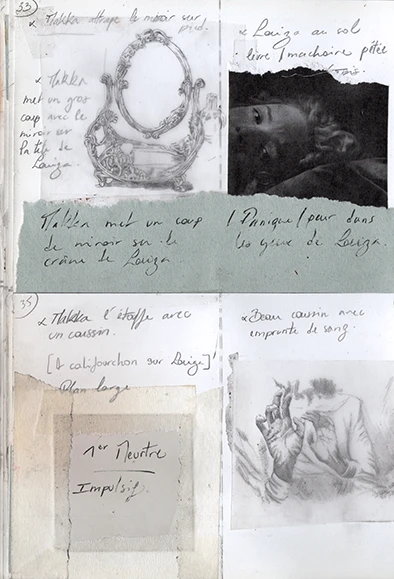 33)
x Makka attrape le miroir sur
pied.
x Makka
met un gros
coup avec le
miroir sur
la tête de
Louiza.
x Louiza au sol
lèvre / machoire pétée
Makka met un coup
de miroir sur le
crâne de Louiza
/ Panique / peur dans
les yeux de Louiza.
x Makka l'étouffe avec
un coussin.
[A califourchon sur Louiza]
Plan large
1er Meurtre
Impulsif.
x Beau coussin avec
emprunte de sang.